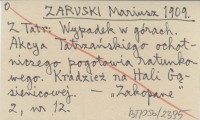 ZARUSKI Mariusz 1909.
Z Tatr: Wypadek w górach.
Akcya Tatrzańskiego ochot-
niczego pogotowia ratunko-
wego. Kradzież na Hali Gą-
sienicowej. — „Zakopane"
2, nr 12.